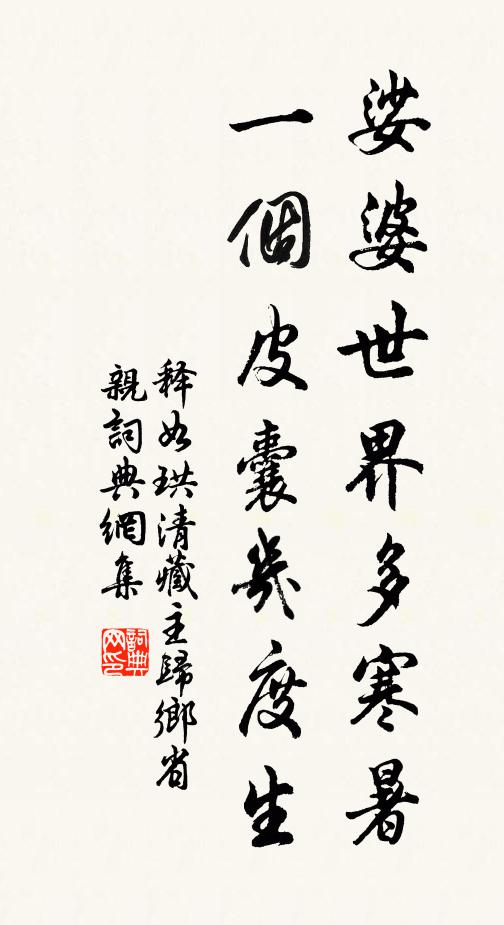 娑婆世界多寒暑
一個皮囊幾度生
释如珙清藏主歸鄉省
親詞典網集
詞典网印